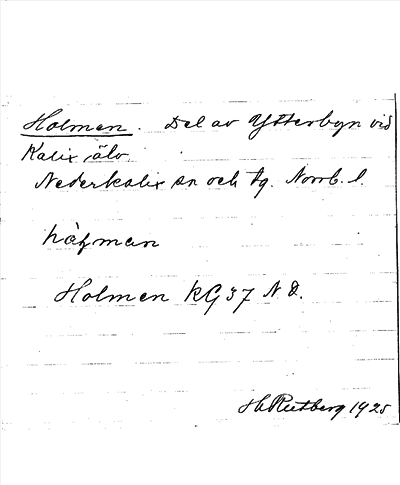 Holmen. Del av Ytterbyn vid
Kalix älv.
Nederkalix sn och tg. Norrb. l.
hàɫman
Holmen KG 37 N.Ö.
Hl Rutberg 1925